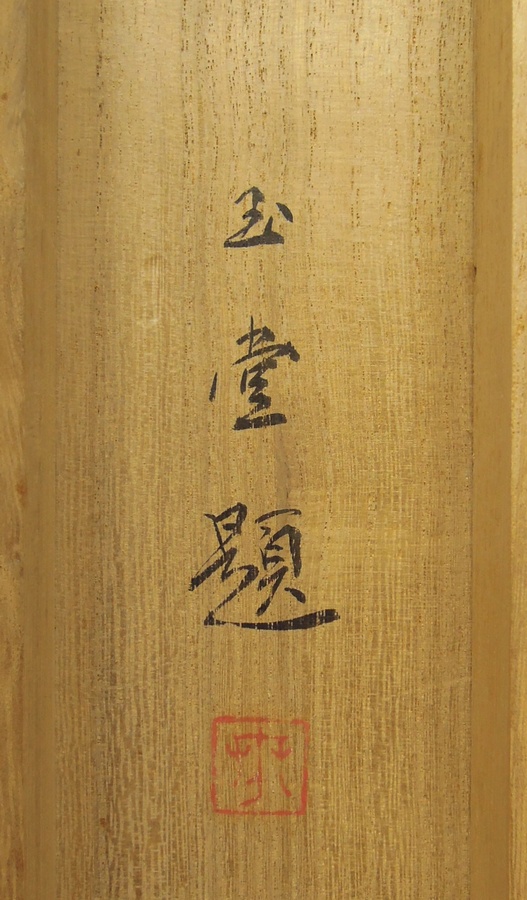 玉堂題